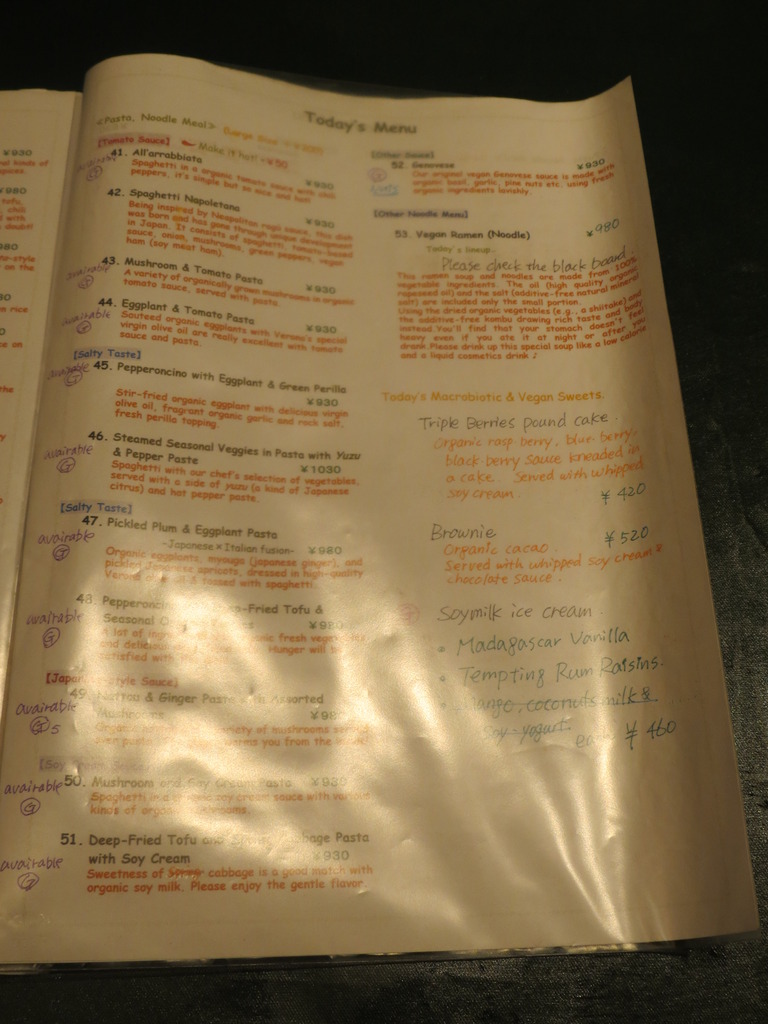 Today's Menu
<Pasta, Noodle Meal>
[Tomato Sauce] Make it hot! +¥50
41. All'arrabbiata
¥930
Spaghetti in a organic tomato sauce with chili
peppers, it's simple but so nice and hot!
42. Spaghetti Napoletana
¥930
Being inspired by Neapolitan ragù sauce, this dish
was born and has gone through unique development
in Japan. It consists of spaghetti, tomato-based
sauce, onion, mushrooms, green peppers, vegan
ham (soy meat ham).
43. Mushroom & Tomato Pasta
¥930
A variety of organically grown mushrooms in organic
tomato sauce, served with pasta.
44. Eggplant & Tomato Pasta
¥930
Sauteed organic eggplants with Verona's special
virgin olive oil are really excellent with tomato
sauce and pasta.
[Salty Taste]
45. Pepperoncino with Eggplant & Green Perilla
¥930
Stir-fried organic eggplant with delicious virgin
olive oil, fragrant organic garlic and rock salt.
fresh perilla topping.
46. Steamed Seasonal Veggies in Pasta with Yuzu
& Pepper Paste
¥1030
Spaghetti with our chef's selection of vegetables,
served with a side of yuzu (a kind of Japanese
citrus) and hot pepper paste.
[Salty Taste]
avairable G
47. Pickled Plum & Eggplant Pasta
-Japanese×Italian fusion- ¥980
Organic eggplants, myouga (japanese ginger), and
pickled Japanese apricots, dressed in high-quality
oil & tossed with spaghetti.
avairable G
48. Deep-Fried Tofu &
Seasonal
¥980
A lot of
and delicious Hunger will be
satisfied with
[Japanese-style Sauce]
avairable G 5
49. Nattou & Ginger Paste with Assorted
Mushrooms ¥980
variety of mushrooms
over pasta warms you from the
avairable G
50. Mushroom and Soy Cream Pasta ¥930
Spaghetti in a soy cream sauce with various
kinds of organic mushrooms.
avairable G
51. Deep-Fried Tofu and Cabbage Pasta
with Soy Cream ¥930
Sweetness of cabbage is a good match with
organic soy milk. Please enjoy the gentle flavor.
[Other Sauce]
52. Genovese
¥930
Our original vegan Genovese sauce is made with
organic basil, garlic, pine nuts etc. using fresh
organic ingredients lavishly.
[Other Noodle Menu]
53. Vegan Ramen (Noodle) ¥980
Today's lineup.
Please check the black board.
This ramen soup and noodles are made from 100%
vegetable ingredients. The oil (high quality organic
rapeseed oil) and the salt (additive-free natural mineral
salt) are included only the small portion.
Using the dried organic vegetables (e.g., a shiitake) and
the additive-free kombu drawing rich taste and body
instead. You'll find that your stomach doesn't feel
heavy even if you ate it at night or after you
drank. Please drink up this special soup like a low calorie
and a liquid cosmetics drink ♪
Today's Macrobiotic & Vegan Sweets.
Triple Berries pound cake.
Organic rasp berry, blur berry,
black berry sauce kneaded in
a cake. Served with whipped
soy cream.
¥420
Brownie
¥520
Organic cacao.
Served with whipped soy cream &
chocolate sauce.
Soymilk ice cream.
• Madagascar Vanilla
• Tempting Rum Raisins.
• Mango, coconuts milk &
Soy-yogurt.
each ¥460